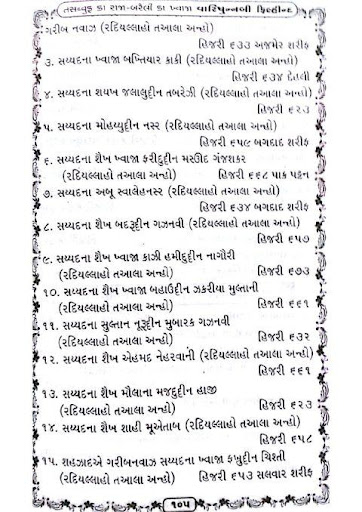 તસવ્વુફ કા રાજા-બરેલી કા ખ્વાજા વારિષુન્નબી ફિલહિન્દ
ગરીબ નવાઝ (રદિયલ્લાહો તઆલા અન્હો)
હિજરી ૬૩૩ અજમેર શરીફ
૩. સય્યદના ખ્વાજા બખ્તિયાર કાકી (રદિયલ્લાહો તઆલા અન્હો)
હિજરી ૬૩૪ દેહલી
૪. સય્યદના શયખ જલાલુદ્દીન તબરેઝી (રદિયલ્લાહો તઆલા અન્હો)
હિજરી ૬૨૩
૫. સય્યદના મોહય્યુદ્દીન નસ્ર (રદિયલ્લાહો તઆલા અન્હો)
હિજરી ૬૫૯ બગદાદ શરીફ
૬. સય્યદના શૈખ ખ્વાજા ફરીદુદ્દીન મસઊદ ગંજશકર
(રદિયલ્લાહો તઆલા અન્હો) હિજરી ૬૬૮ પાક પટ્ટન
૭. સય્યદના અબૂ સ્વાલેહનસ્ર (રદિયલ્લાહો તઆલા અન્હો)
હિજરી ૬૩૪ બગદાદ શરીફ
૮. સય્યદના શૈખ બદરૂદ્દીન ગઝનવી (રદિયલ્લાહો તઆલા અન્હો)
હિજરી ૬૫૭
૯. સય્યદના શૈખ ખ્વાજા કાઝી હમીદુદ્દીન નાગૌરી
(રદિયલ્લાહો તઆલા અન્હો) હિજરી ૬૭૩
૧૦. સય્યદના શૈખ ખ્વાજા બહાઉદ્દીન ઝકરીયા મુલ્તાની
(રદિયલ્લાહો તઆલા અન્હો) હિજરી ૬૬૧
૧૧. સય્યદના સુલ્તાન નૂરૂદ્દીન મુબારક ગઝનવી
(રદિયલ્લાહો તઆલા અન્હો) હિજરી ૬૩૨
૧૨. સય્યદના શૈખ એહમદ નેહરવાની (રદિયલ્લાહો તઆલા અન્હો)
હિજરી ૬૬૧
૧૩. સય્યદના શૈખ મૌલાના મજદુદ્દીન હાજી
(રદિયલ્લાહો તઆલા અન્હો) હિજરી ૬૨૩
૧૪. સય્યદના શૈખ શાહી મૂએતાબ (રદિયલ્લાહો તઆલા અન્હો)
હિજરી ૬૫૮
૧૫. શહઝાદએ ગરીબનવાઝ સય્યદના ખ્વાજા ફખ્રુદ્દીન ચિશ્તી
(રદિયલ્લાહો તઆલા અન્હો) હિજરી ૬૫૩ સલવાર શરીફ
૧૦૫